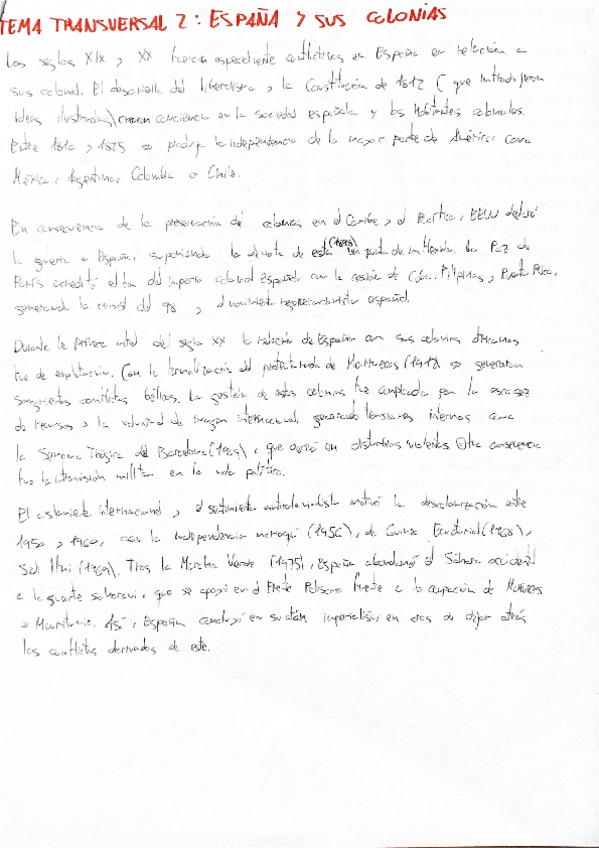 TEMA TRANSVERSAL 2 : ESPAÑA Y SUS COLONIAS
Los siglos XIX y XX fueron especialmente conflictivos en España en relación a
sus colonias. El desarrollo del liberalismo y la Constitución de 1812 ( que introdujeron
ideas ilustradas) crearon conciencia en la sociedad española y los habitantes coloniales.
Entre 1810 y 1825 se produjo la independencia de la mayor parte de América como
México, Argentina, Colombia o Chile.
En consecuencia de la preservación de colonias en el Caribe y el Pacífico, EEUU declaró
la guerra a España, suponiendo la derrota de esta (1898) un punto de inflexión. La Paz de
París acreditó el fin del imperio colonial español con la cesión de Cuba, Filipinas y Puerto Rico,
generando la crisis del 98 y el movimiento regeneracionista español.
Durante la primera mitad del siglo XX la relación de España con sus colonias africanas
fue de explotación. Con la formalización del protectorado de Marruecos (1912) se generaron
sangrientos conflictos bélicos. La gestión de estas colonias fue complicada por la escasez
de recursos y la voluntad de imagen internacional, generando tensiones internas como
la Semana Trágica de Barcelona (1909), que en disturbios violentos. Otra consecuencia
fue la intromisión militar en la vida política.
El aislamiento internacional y el sentimiento anticolonialista motivó la descolonización entre
1950 y 1960, con la independencia marroquí (1956), de Guinea Ecuatorial (1968),
Sidi Ifni (1969). Tras la Marcha Verde (1975), España abandonó el Sáhara occidental
a la saharaui, que se apoyó en el Frente Polisario frente a la ocupación de Marruecos
y Mauritania. Así, España concluyó en su afán imperialista en aras de dejar atrás
los conflictos derivados de este.